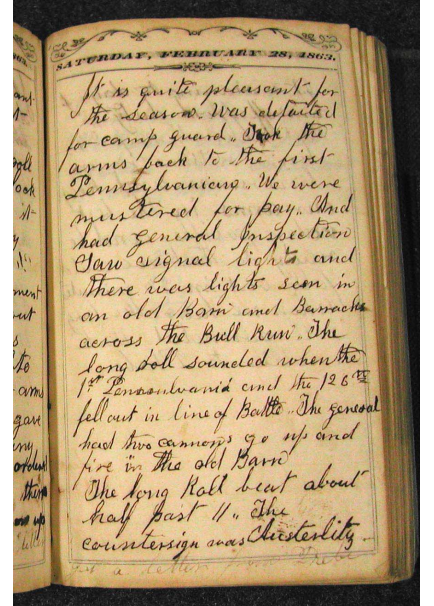 SATURDAY, FEBRUARY 28, 1863.
It is quite pleasant for
the season. Was detailed
for camp guard. Took the
arms back to the first
Pennsylvanians. We were
mustered for pay. And
had general inspection
Saw signal lights and
there was lights seen in
an old Barn and Barracks
across the Bull Run. The
long roll sounded when the
1st Pennsulvania and the 126th
fell out in line of Battle. The general
had two cannons go up and
fire in the old Barn
The long Roll beat about
half past 11. The
countersign was Austerlity.
a letter from